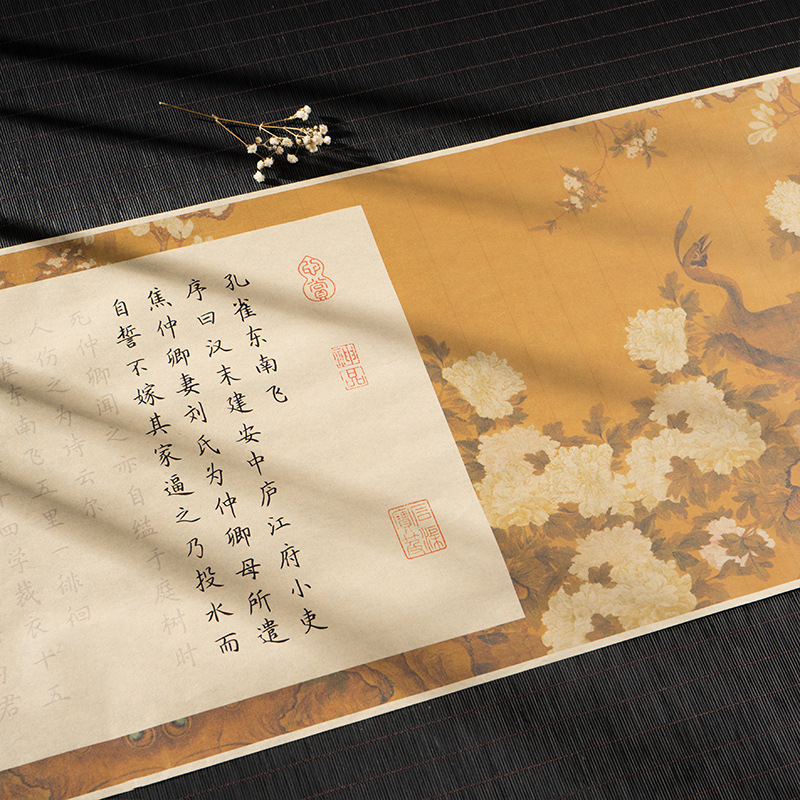 孔雀东南飞
序曰汉末建安中庐江府小吏
焦仲卿妻刘氏为仲卿母所遣
自誓不嫁其家逼之乃投水而
死仲卿闻之亦自缢于庭树时
人伤之为诗云尔
雀东南飞五里一徘徊
十四学裁衣十五
君
心赏
神品